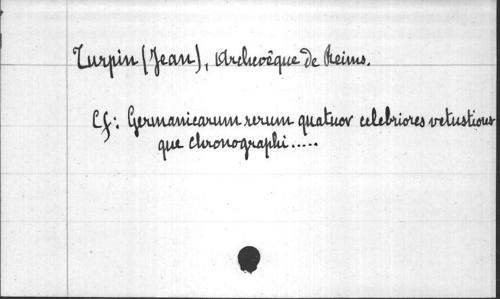 Turpin (Jean), Archevêque de Reims.
Cf: Germanicarum rerum quatuor celebriores vetustiores
que chronographi.....